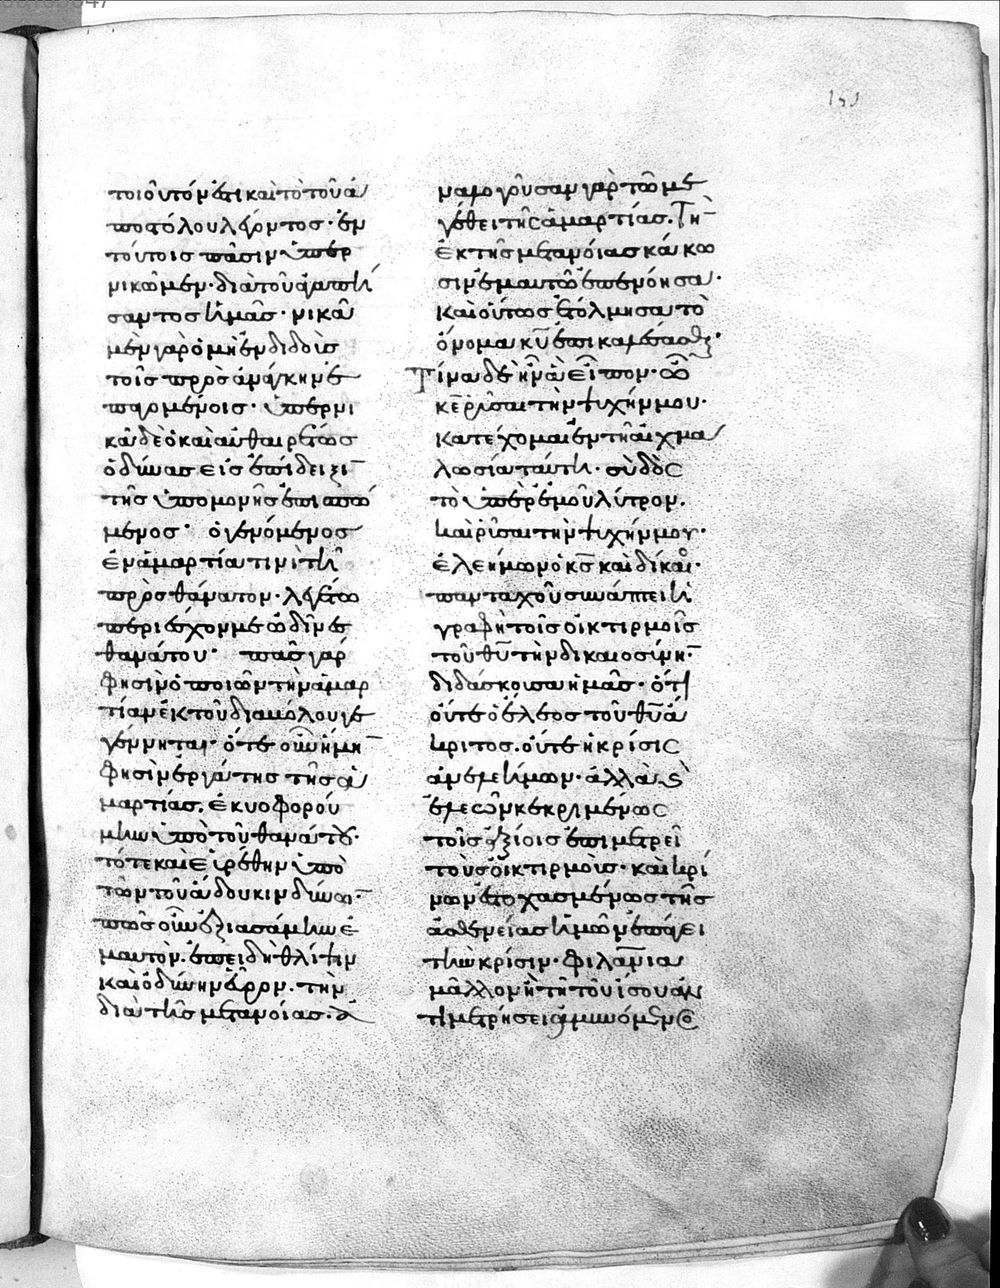 τοιοῦτόν ἐστι καὶ τὸ τοῦ ἀ
ποστόλου λέγοντος· ἐν
τούτοις πᾶσιν ὑπερ
νικῶμεν· διὰ τοῦ ἀγαπή
σαντος ἡμᾶς· νικᾶ
μὲν γὰρ ὁ μὴ ἐνδιδοὺς
τοῖς πρὸς ἀνάγκην ἐ
παγομένοις· ὑπερνι
κᾶ δὲ ὁ καὶ αὐθαιρέτως
ὀδύνας εἰς ἐπίδειξι
τῆς ὑπομονῆς ἐπισπώ
μενος· ὁ γενόμενος
ἐν ἁμαρτία τινὶ τῆ
πρὸς θάνατον· λεγέτω
περιέσχον με ὠδῖνες
θανάτου· πᾶς γάρ
φησιν ὁ ποιῶν τὴν ἁμαρ
τίαν ἐκ τοῦ διαβόλου γε
γέννηται· ὅτε οὖν ἤμη
φησὶν ἐργάτης τῆς ἁ
μαρτίας. ἐκυοφορού
μην ὑπὸ τοῦ θανάτου·
τότε καὶ εὑρέθην ὑπὸ
τῶν τοῦ ἅδου κινδύνων·
πῶς οὖν ἐξιασάμην ἐ
μαυτόν. ἐπειδὴ θλίψιν
καὶ ὀδύνην εὗρον. τὴν
διὰ τῆς μετανοίας·
γὰρ τῶ με
γέθει τῆς ἁμαρτίας. τὴ
ἐκ τῆς μετανοίας κάκω
σιν ἐμαυτῶ ἐπενόησα·
καὶ οὕτως ἐτόλμησα τὸ
ὄνομα κυ ἐπικαλέσασθαι·
Τίνα δὲ ἦν ἃ εἶπον· ὦ
κε ῥῦσαι τὴν ψυχήν μου·
κατέχομαι ἐν τῆ αἰχμα
λωσία ταύτη· σὺ δὸς
τὸ ὑπὲρ ἐμοῦ λύτρον.
καὶ ῥῦσαι τὴν ψυχήν μου·
ἐλεήμων ὁ κς καὶ δίκαιος·
πανταχοῦ συνάπτει ἡ
γραφὴ τοῖς οἰκτιρμοῖς
τοῦ θυ τὴν δικαιοσύνην·
διδάσκουσα ἡμᾶς· ὅτι
οὔτε ὁ ἔλεος τοῦ θυ ἄ
κριτος. οὔτε ἡ κρίσις
ἀνελεήμων· ἀλλὰ καὶ
ἐλεῶν κεκριμένως
τοῖς ἀξίοις ἐπιμετρεῖ
τοὺς οἰκτιρμούς· καὶ κρί
νων ἐστοχασμένως τῆς
ἀσθενείας ἡμῶν ἐπάγει
τὴν κρίσιν· φιλανια
μᾶλλον ἢ τῆ τοῦ ἴσου ἀν
τιμετρήσει ἀμυνόμενος